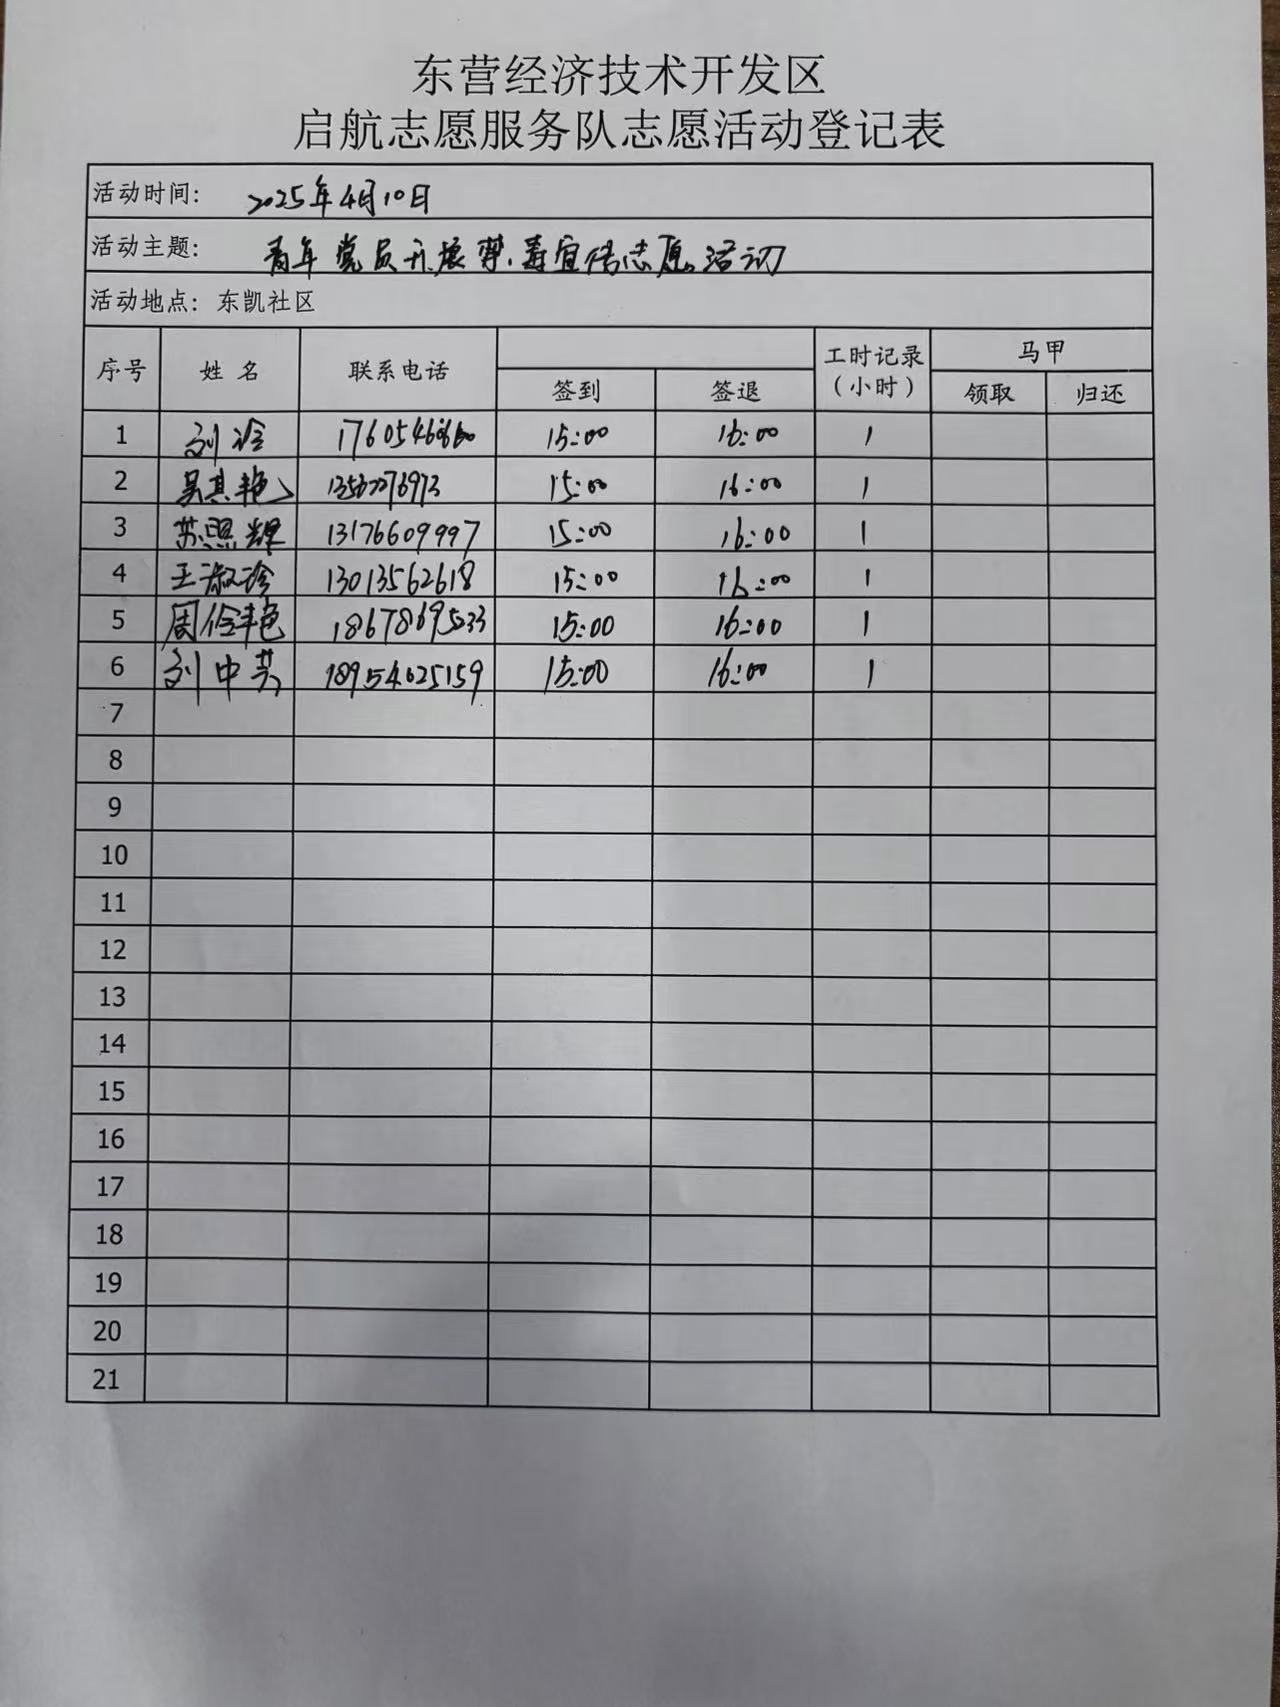 东营经济技术开发区
启航志愿服务队志愿活动登记表
活动时间： 2025年4月10日
活动主题： 青年党员开展禁毒宣传志愿活动
活动地点：东凯社区
序号 姓 名 联系电话 签到 签退 工时记录（小时） 马甲 领取 归还
1 刘冷 15:00 16:00 1
2 吴其艳 15:00 16:00 1
3 苏照辉 13176609997 15:00 16:00 1
4 王淑珍 13013562618 15:00 16:00 1
5 周伶艳 18678695033 15:00 16:00 1
6 刘中芳 18954625159 15:00 16:00 1
7
8
9
10
11
12
13
14
15
16
17
18
19
20
21